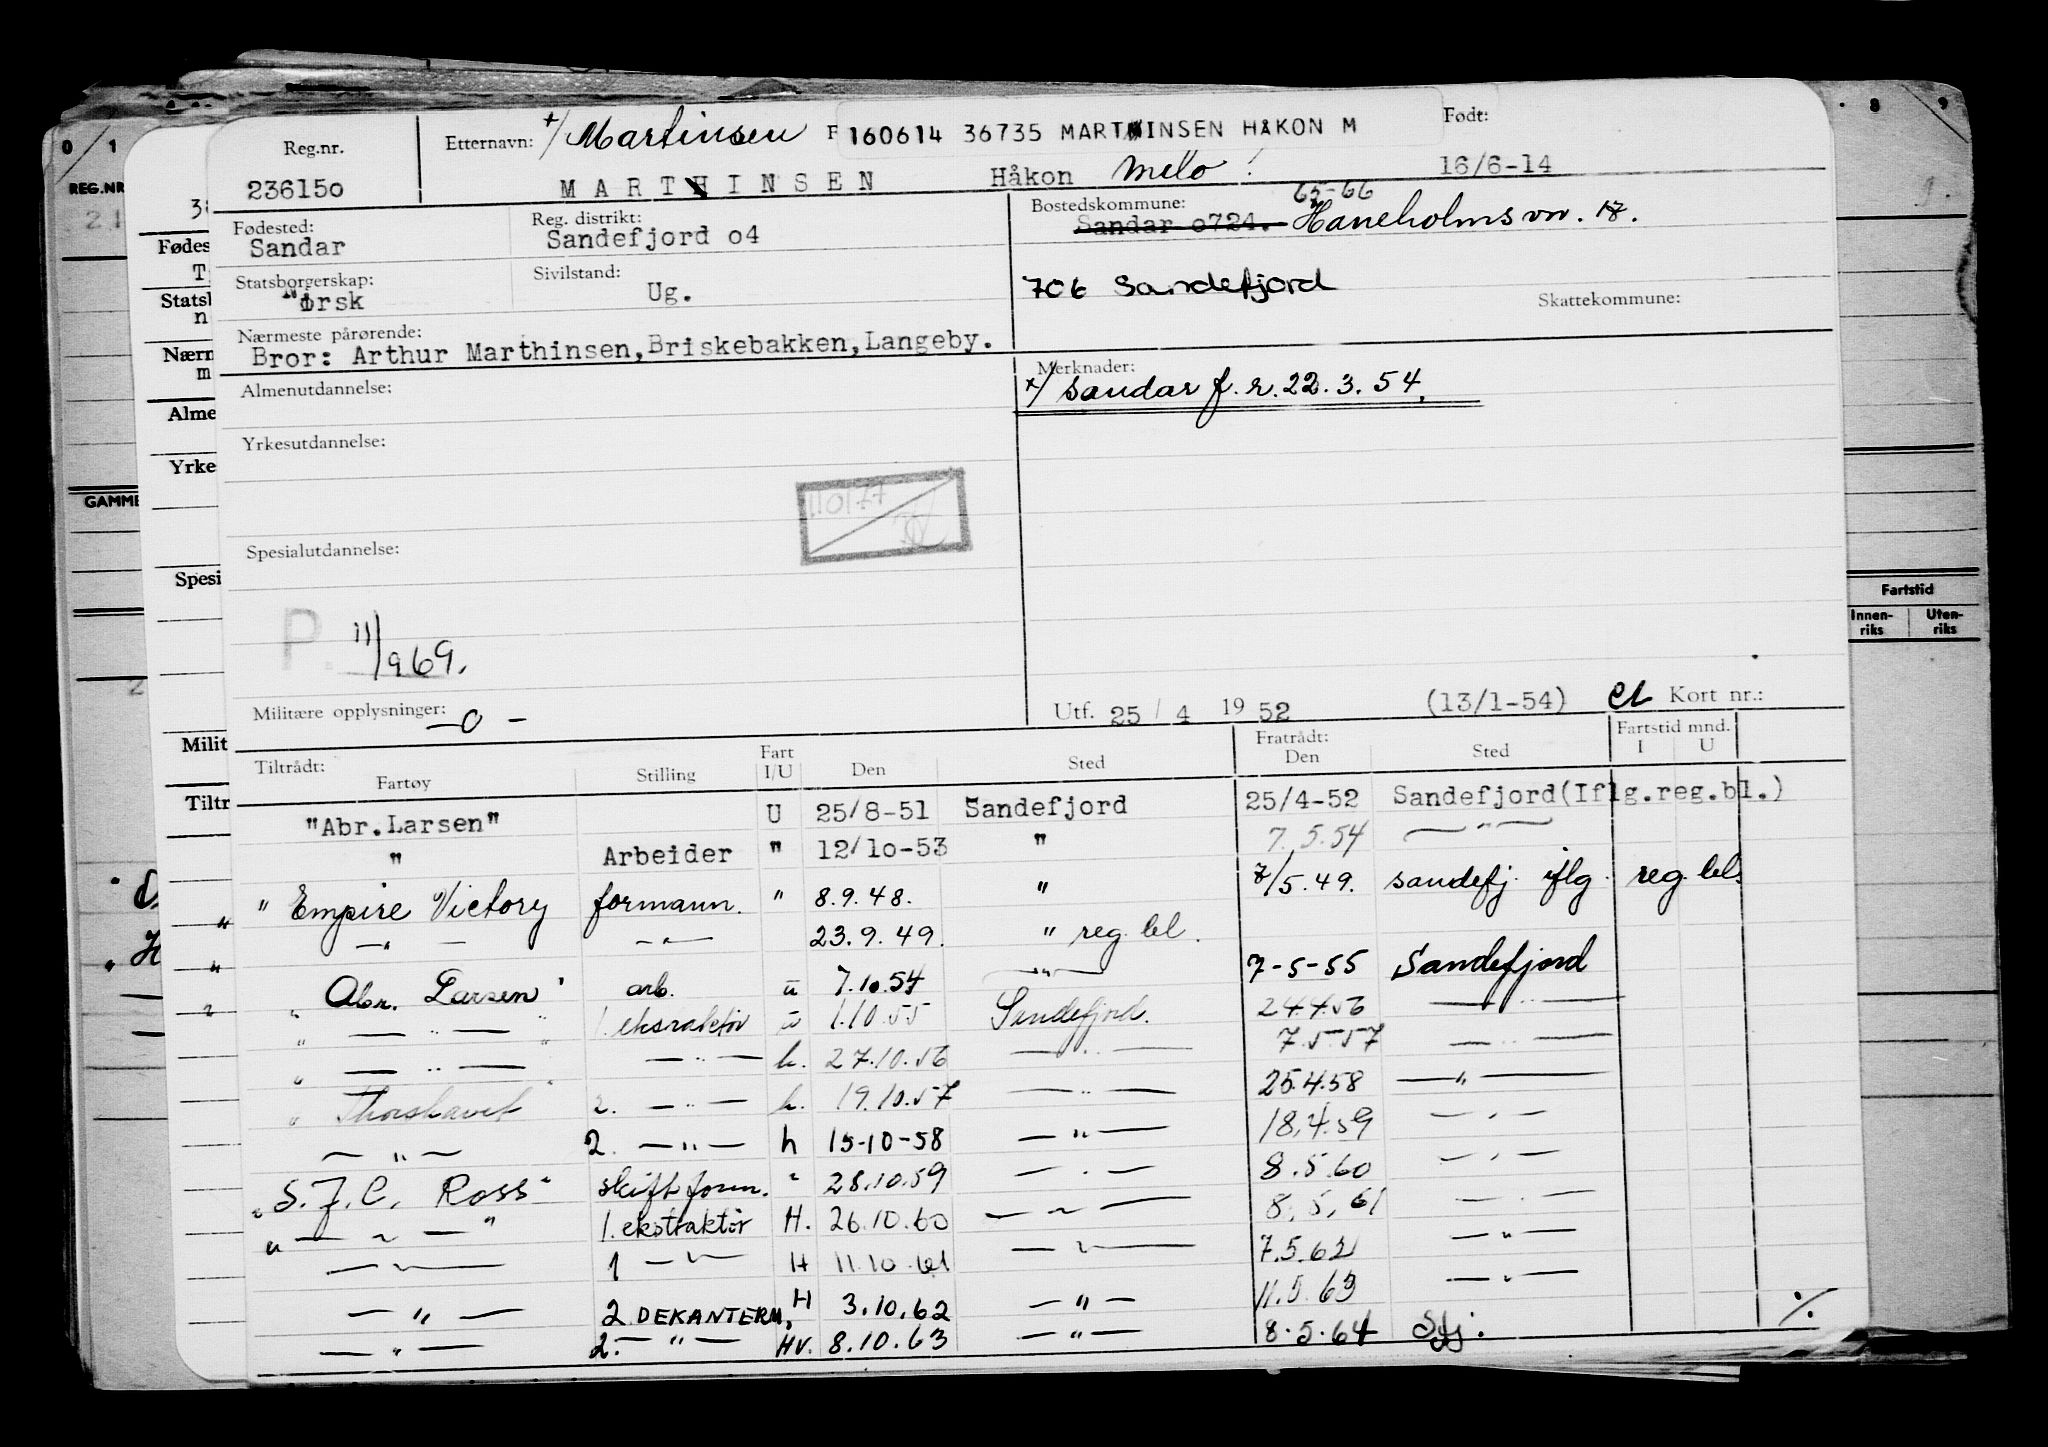 Reg.nr.
236150
Etternavn: x/ Martinsen F 160614 36735 MARTHINSEN HÅKON M
Født:
MARTHINSEN Håkon Melo!
16/6-14
Fødested:
Sandar
Reg. distrikt:
Sandefjord o4
Bostedskommune: 65-66
Sandar o724. Haneholmsvn. 17.
706 Sandefjord
Skattekommune:
Statsborgerskap:
Norsk
Sivilstand:
Ug.
Nærmeste pårørende:
Bror: Arthur Marthinsen, Briskebakken, Langeby.
Almenutdannelse:
Merknader:
x/ Sandar f. r. 22.3.54.
Yrkesutdannelse:
Spesialutdannelse:
P. 11/969.
Militære opplysninger: -o-
Utf. 25/4 1952 (13/1-54) Kort nr.:
Tiltrådt:
Fartøy Stilling Fart I/U Den Sted Fratrådt: Den Sted Fartstid mnd. I U
"Abr.Larsen" U 25/8-51 Sandefjord 25/4-52 Sandefjord(Iflg.reg.bl.)
" Arbeider " 12/10-53 " 7.5.54 — " —
" Empire Victory formann. " 8.9.48. " 7/5.49. Sandefj. iflg. reg. bl.
— " — — " — 23.9.49. " reg. bl.
" Abr. Larsen " arb. u 7.10.54 — " — 7-5-55 Sandefjord
" — " — " 1. eksraktør u 1.10.55 Sandefjord. 24.4.56 — " —
" — " — — " — h. 27.10.56 — " — 7.5.57 — " —
" Thorshavet " 2. — " — h. 19.10.57 — " — 25.4.58 — " —
— " — 2. — " — h 15-10-58 — " — 18.4.59 — " —
"S.J.C. Ross" skift form. " 28.10.59 — " — 8.5.60 — " —
" — " — " 1. ekstraktør H. 26.10.60 — " — 8.5.61 — " —
— " — 1 — " — H 11.10.61 — " — 7.5.62 — " —
— " — 2 DEKANTERM. H 3.10.62 — " — 11.5.63 — " —
— " — 2. — " — HV. 8.10.63 — " — 8.5.64 Sfj.
%
REG.NR
GAMME
Fartstid
Innen-
riks
Uten-
riks
Fødes
Statsb
Nærm
Alme
Yrke
Spesi
Milit
Tiltr